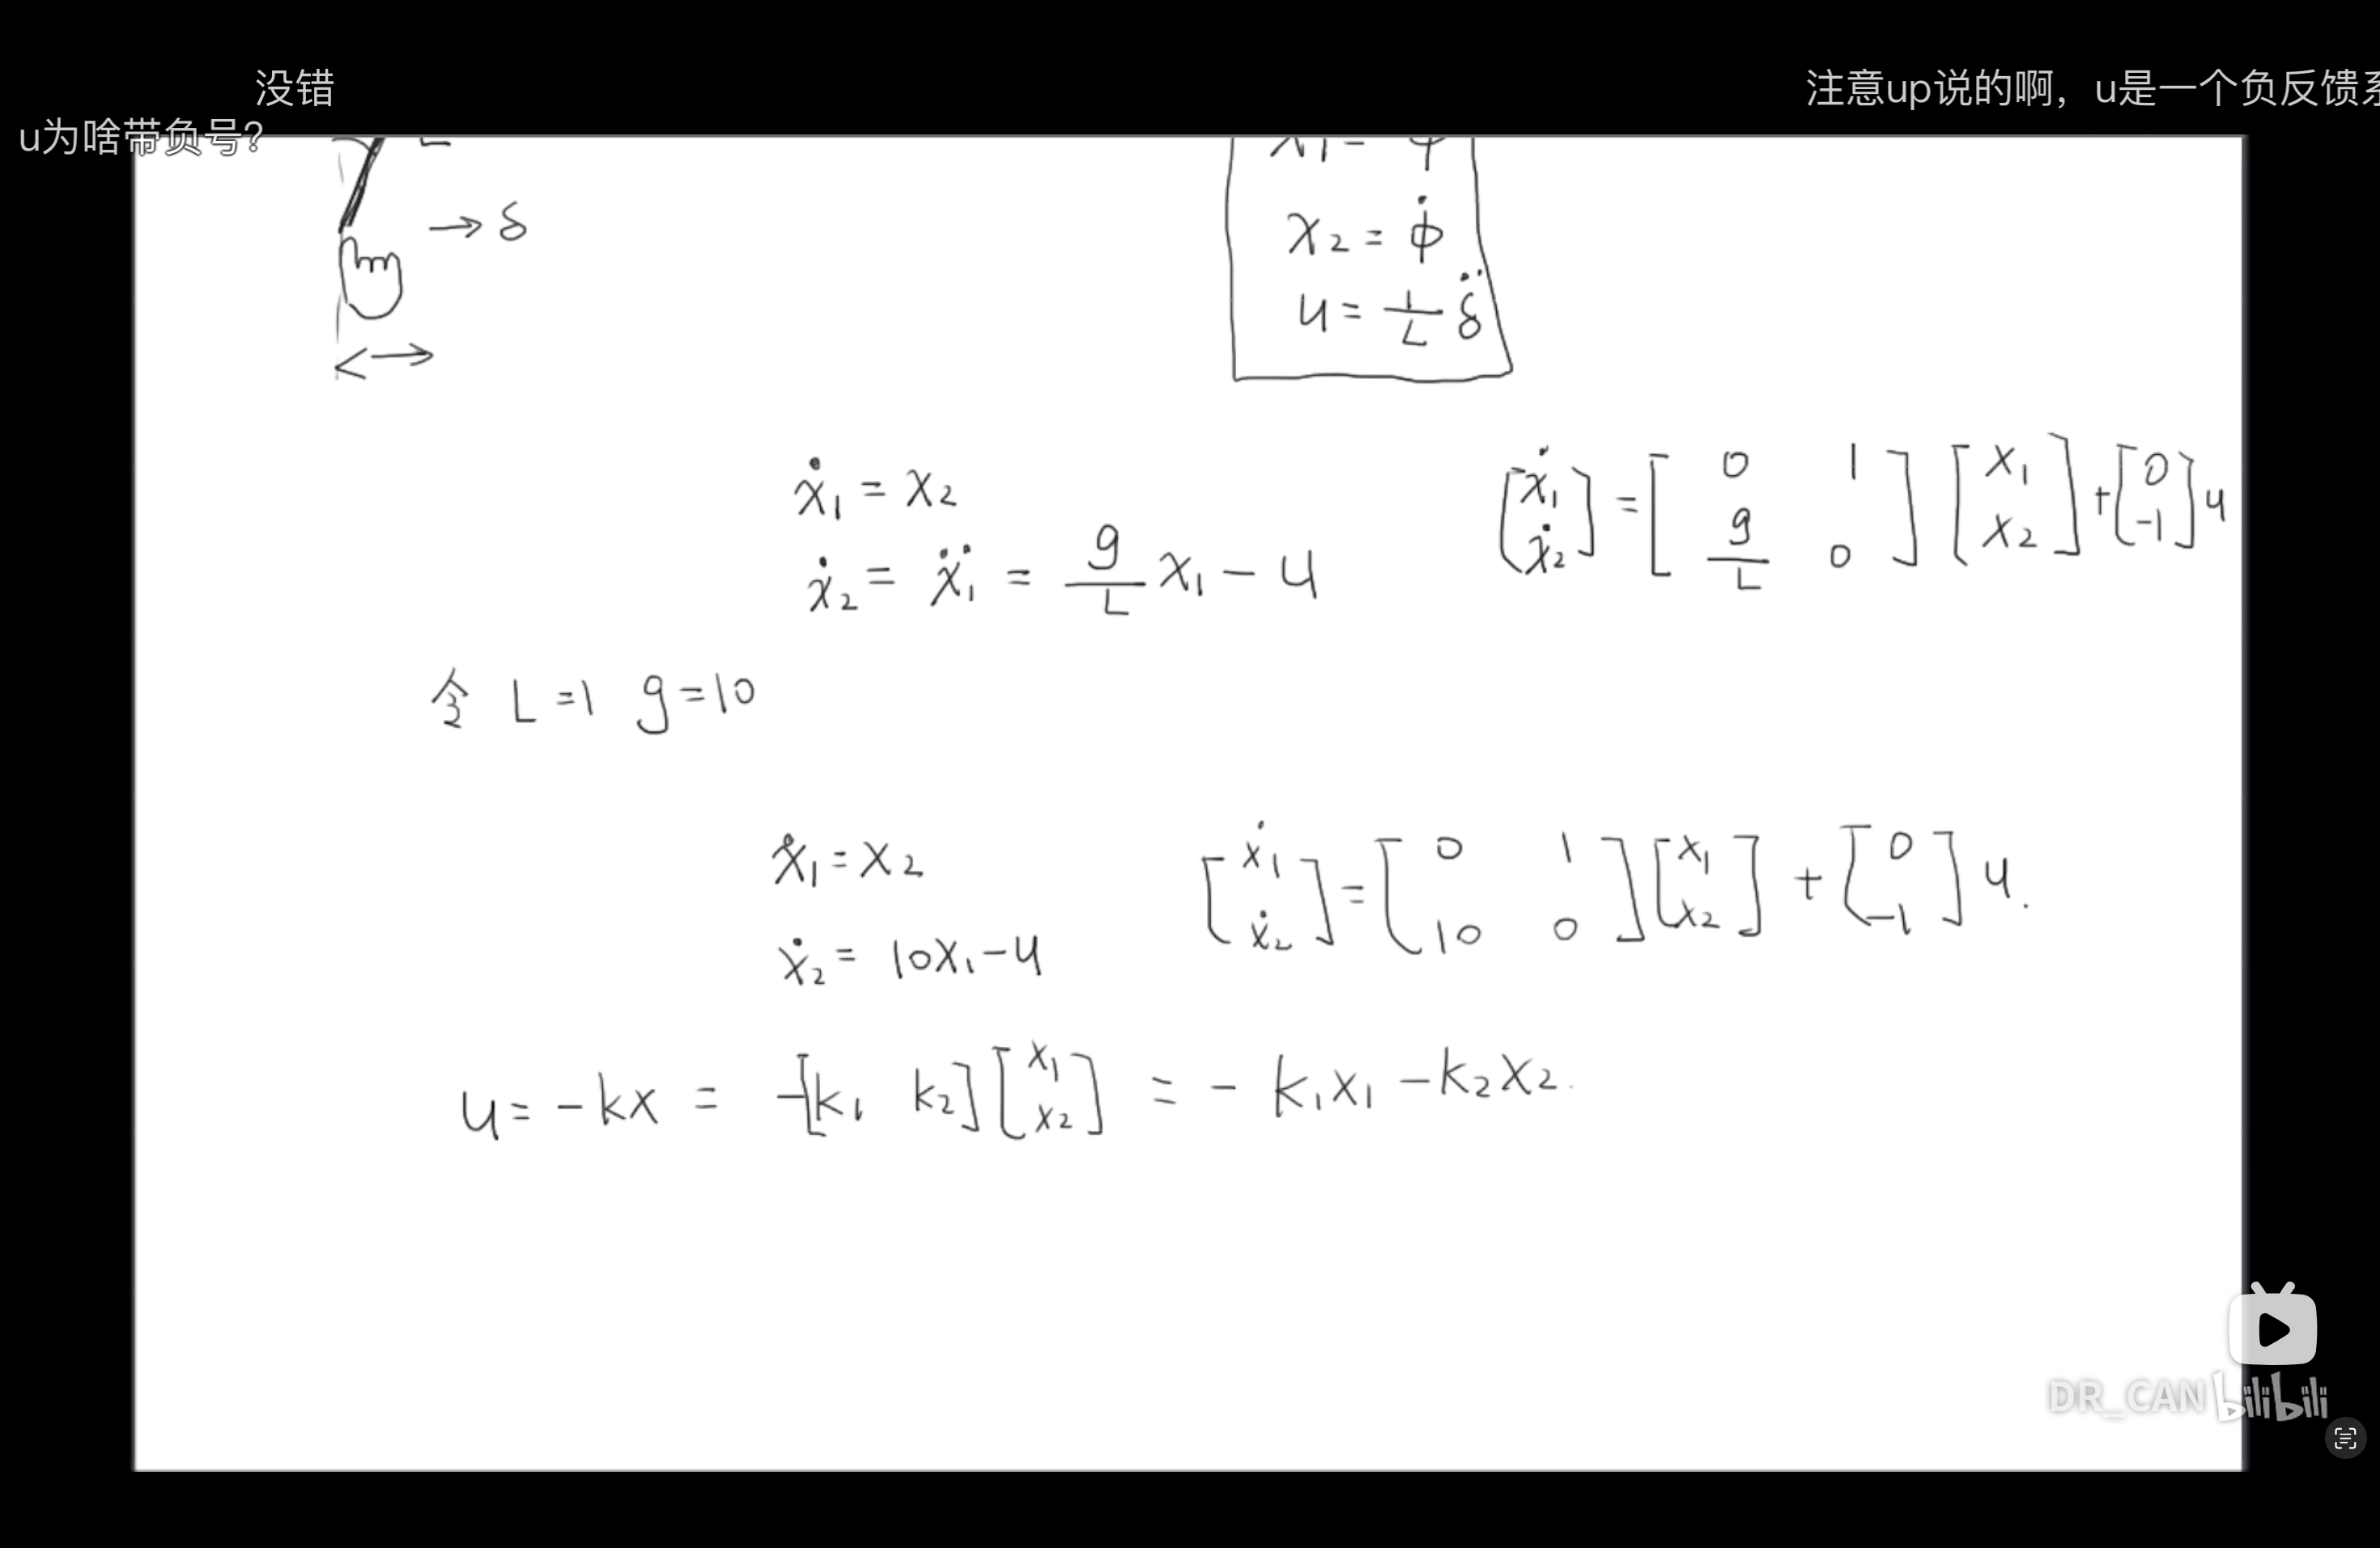 没错
注意up说的啊，u是一个负反馈系
u为啥带负号？
→ δ
x₁ = φ
x₂ = φ̇
u = 1/L δ̈
ẋ₁ = x₂
ẋ₂ = ẍ₁ = g/L x₁ - u
[ẋ₁ ẋ₂] = [0 1 g/L 0] [x₁ x₂] + [0 -1] u
令 L=1 g=10
ẋ₁ = x₂
ẋ₂ = 10x₁ - u
[ẋ₁ ẋ₂] = [0 1 10 0] [x₁ x₂] + [0 -1] u.
u = -kx = -[k₁ k₂] [x₁ x₂] = - k₁x₁ - k₂x₂.
DR_CAN bilibili